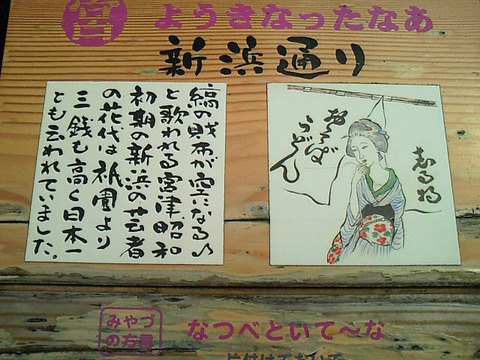 ようきなったなあ
新浜通り
縞の財布が空になる♪
と歌われる宮津昭和
初期の新浜の芸者
の花代は祇園より
三銭も高く日本一
とも云われていました。
おそば
うどん
みやづ
の方言
なつべといて～な
片付けておいて